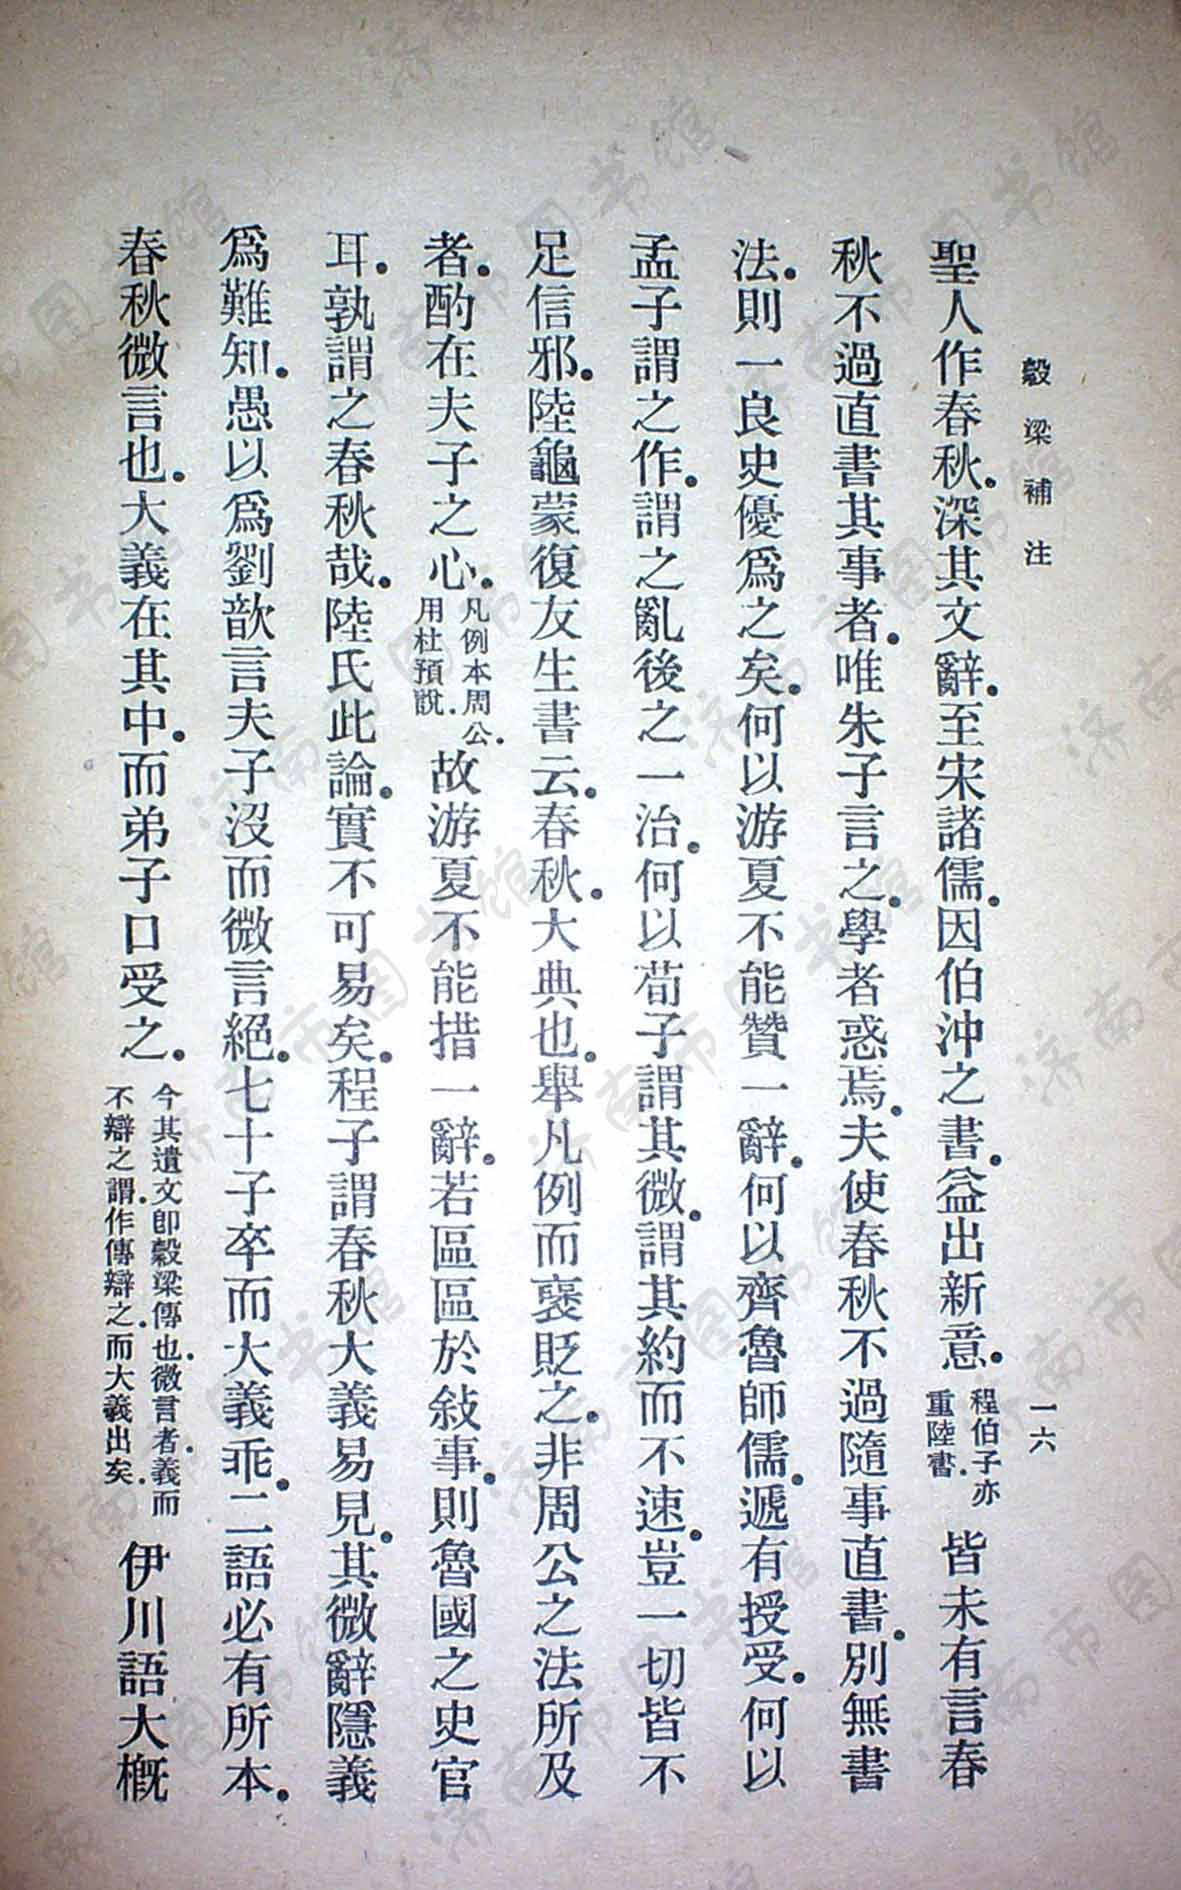 穀梁補注 一六
聖人作春秋.深其文辭.至宋諸儒.因伯沖之書.益出新意.程伯子亦重陸書.皆未有言春
秋不過直書其事者.唯朱子言之.學者惑焉.夫使春秋不過隨事直書.別無書
法.則一良史優爲之矣.何以游夏不能贊一辭.何以齊魯師儒.遞有授受.何以
孟子謂之作.謂之亂後之一治.何以荀子謂其微.謂其約而不速.豈一切皆不
足信邪.陸龜蒙復友生書云.春秋.大典也.舉凡例而襃貶之.非周公之法所及
者.酌在夫子之心.凡例本周公.用杜預說.故游夏不能措一辭.若區區於敍事.則魯國之史官
耳.孰謂之春秋哉.陸氏此論.實不可易矣.程子謂春秋大義易見.其微辭隱義
爲難知.愚以爲劉歆言夫子沒而微言絕.七十子卒而大義乖.二語必有所本.
春秋微言也.大義在其中.而弟子口受之.今其遺文卽穀梁傳也.微言者.義而不辯之謂.作傳辯之.而大義出矣.伊川語大槪
济南市图书馆